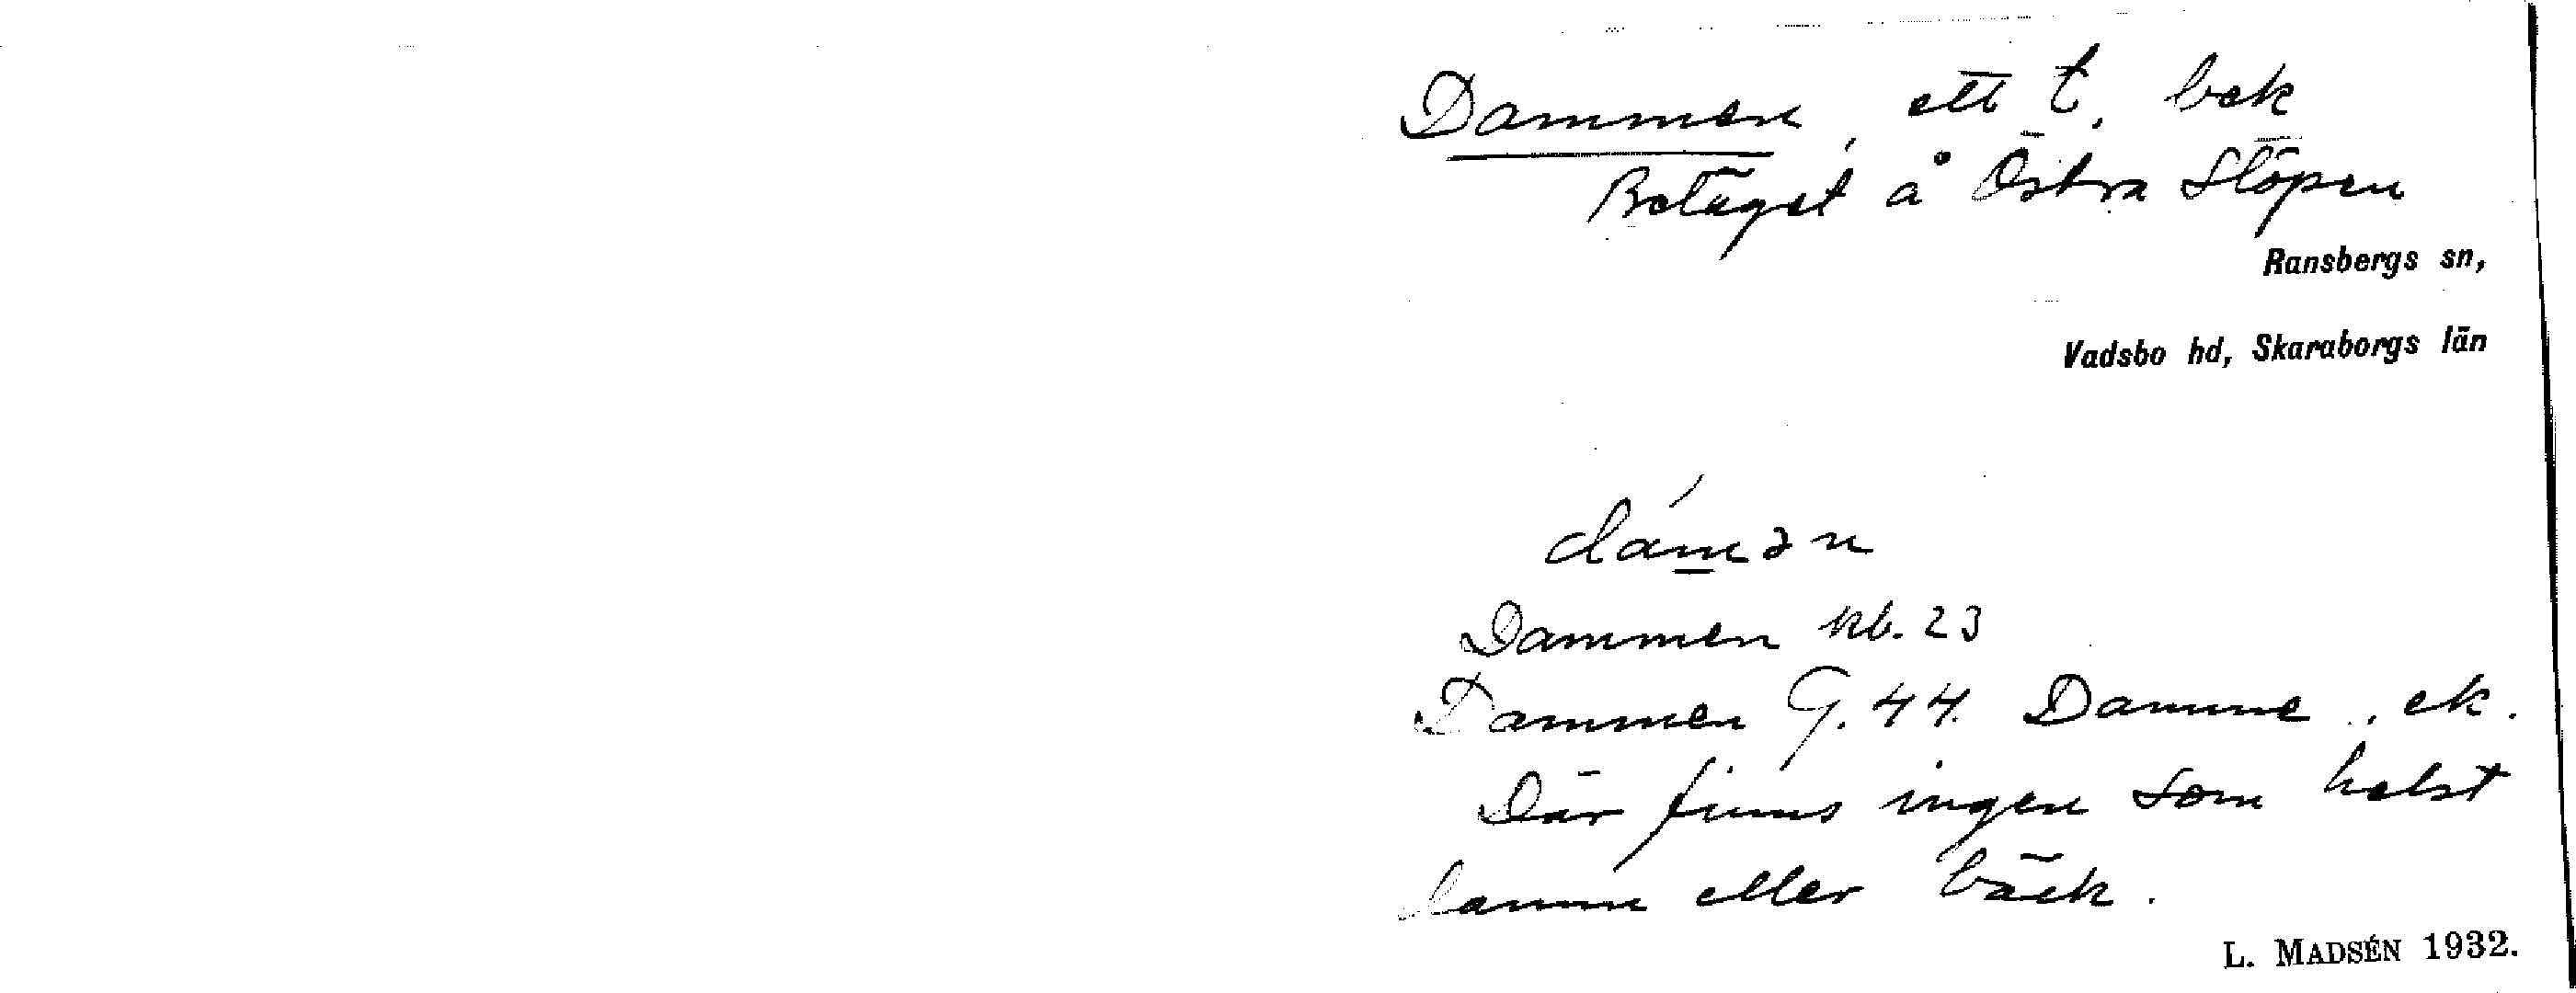 Dammen, ett t. bek
Bolaget å Östra Stöpen
Ransbergs sn,
Vadsbo hd, Skaraborgs län
dámən
Dammen kb. 23
Dammen G. 44. Damme, ek.
Där finns ingen som helst
damm eller bäck.
L. MADSÉN 1932.